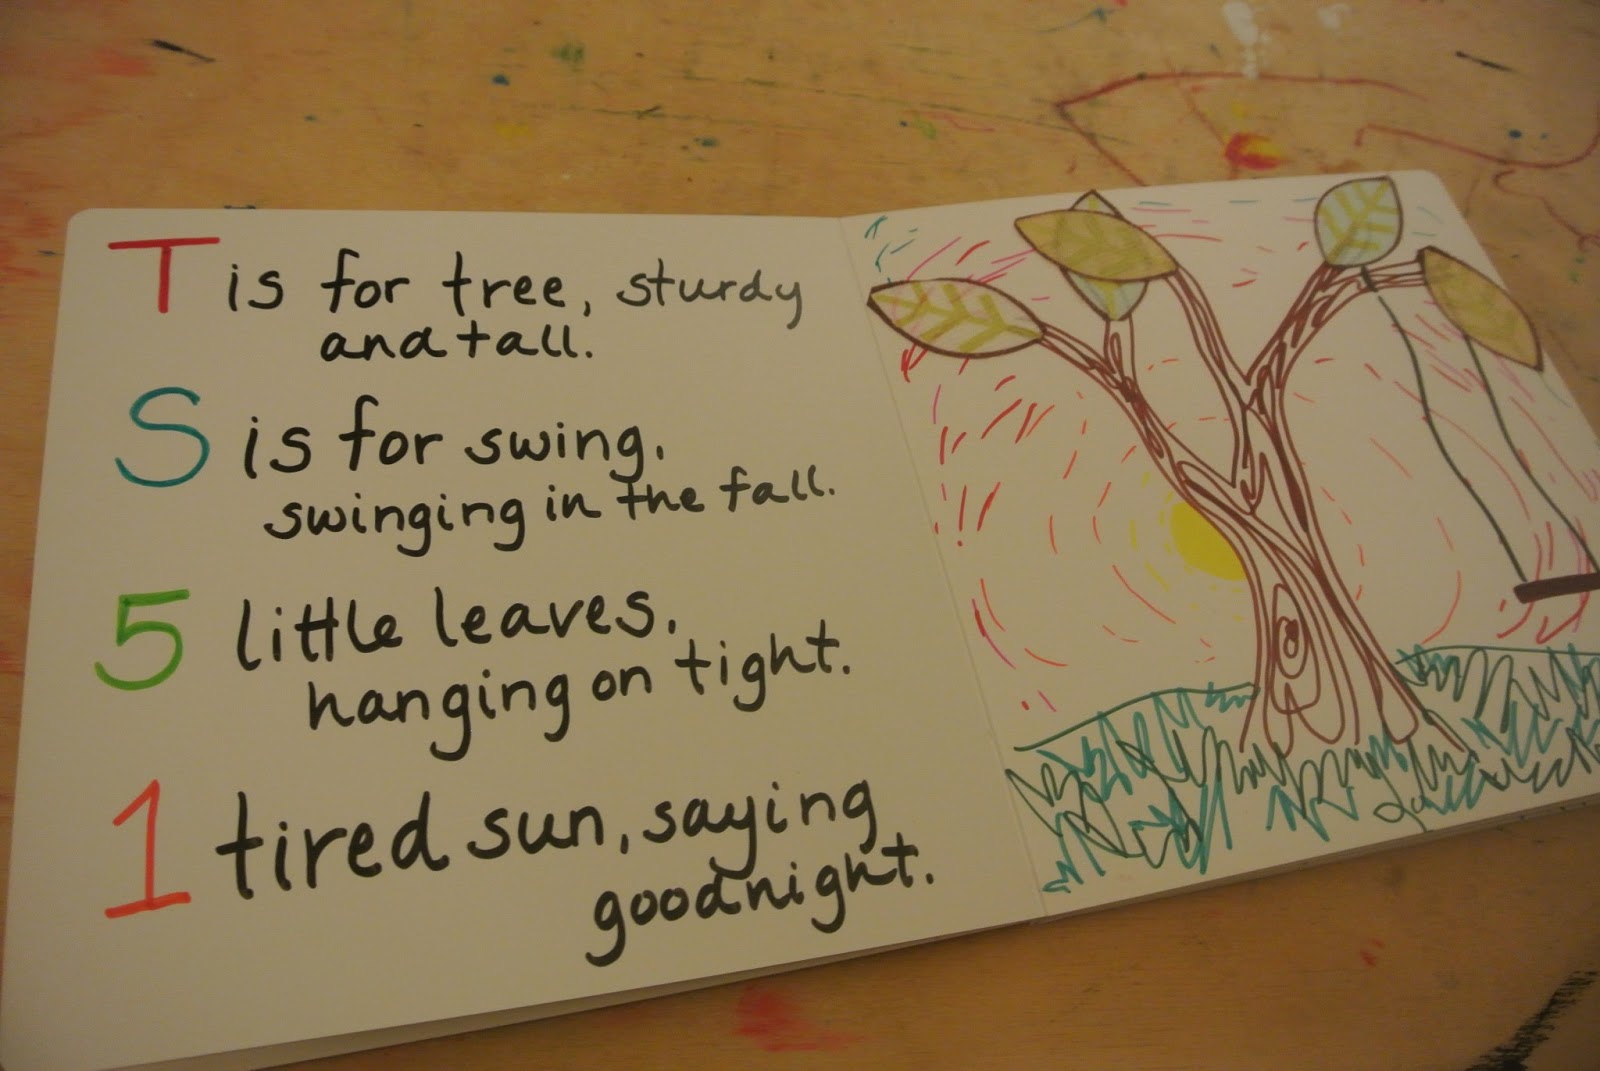 T is for tree, sturdy
and tall.
S is for swing.
swinging in the fall.
5 little leaves.
hanging on tight.
1 tired sun, saying
goodnight.